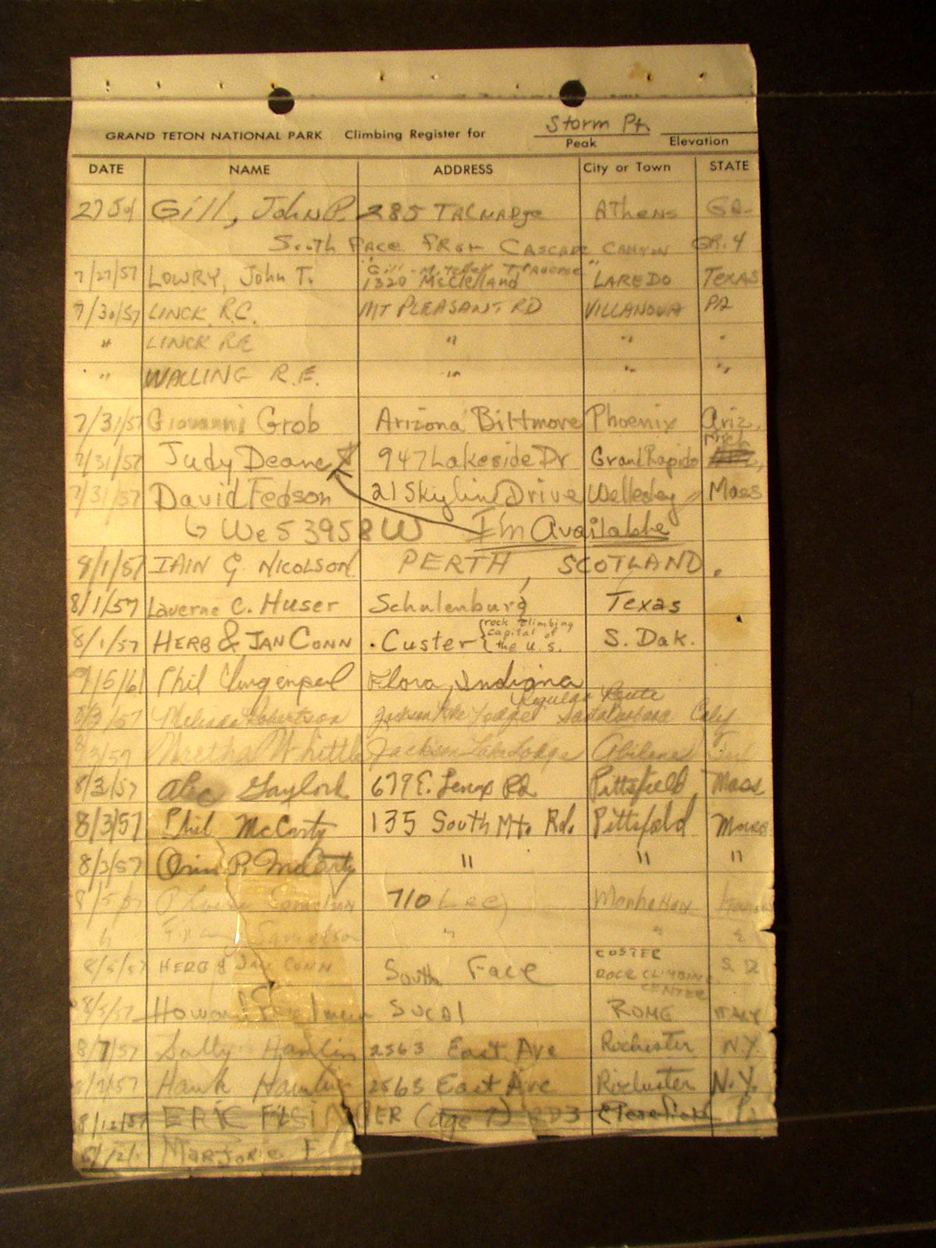 GRAND TETON NATIONAL PARK Climbing Register for Storm Pt.
Peak Elevation
DATE NAME ADDRESS City or Town STATE
Gill, John P. 285 TALMADGE ATHENS GA.
South FACE FROM CASCADE CANYON GR. 4
"Gill - Traverse"
7/27/57 LOWRY, John T. 1320 McClelland LAREDO TEXAS
7/30/57 LINCK R.C. MT PLEASANT RD VILLANOVA PA
" LINCK R.E. " " "
" WALLING R.E. " " "
7/31/57 Giovanni Grob Arizona Biltmore Phoenix Ariz.
Mich
7/31/57 Judy Deane 947 Lakeside Dr Grand Rapids
7/31/57 David Fedson 21 Skylin Drive Wellesley Mass
↳ We 5 3958 W I'm Available
8/1/57 IAIN G. NICOLSON PERTH, SCOTLAND.
8/1/57 Laverne C. Huser Schulenburg Texas
8/1/57 HERB & JAN CONN Custer {rock climbing capital of the U.S. S. Dak.
Phil Flora, Indiana
Regular Route
8/3/57 Melissa Robertson Jackson Lake Lodge Calif
8/3/57 Whittle Jackson Lake Lodge Abilene
8/3/57 Alec Gaylord 679 E. Lenox Rd Pittsfield, Mass
8/3/57 Phil McCarty 135 South Mt. Rd. Pittsfield Mass
8/3/57 Orin P. McCarty " " "
8/5/57 710 Lee Manhattan
" " " "
8/5/57 HERB & JAN CONN South Face CUSTER S.D.
ROCK CLIMBING
CENTER
8/5/57 Howard Friedman SUCAI ROME ITALY
8/7/57 Sally Hamlin 2563 East Ave Rochester N.Y.
8/7/57 Hank Hamlin 2563 East Ave Rochester N.Y.
8/12/57 ERIC (age 7) RD3
Marjorie F